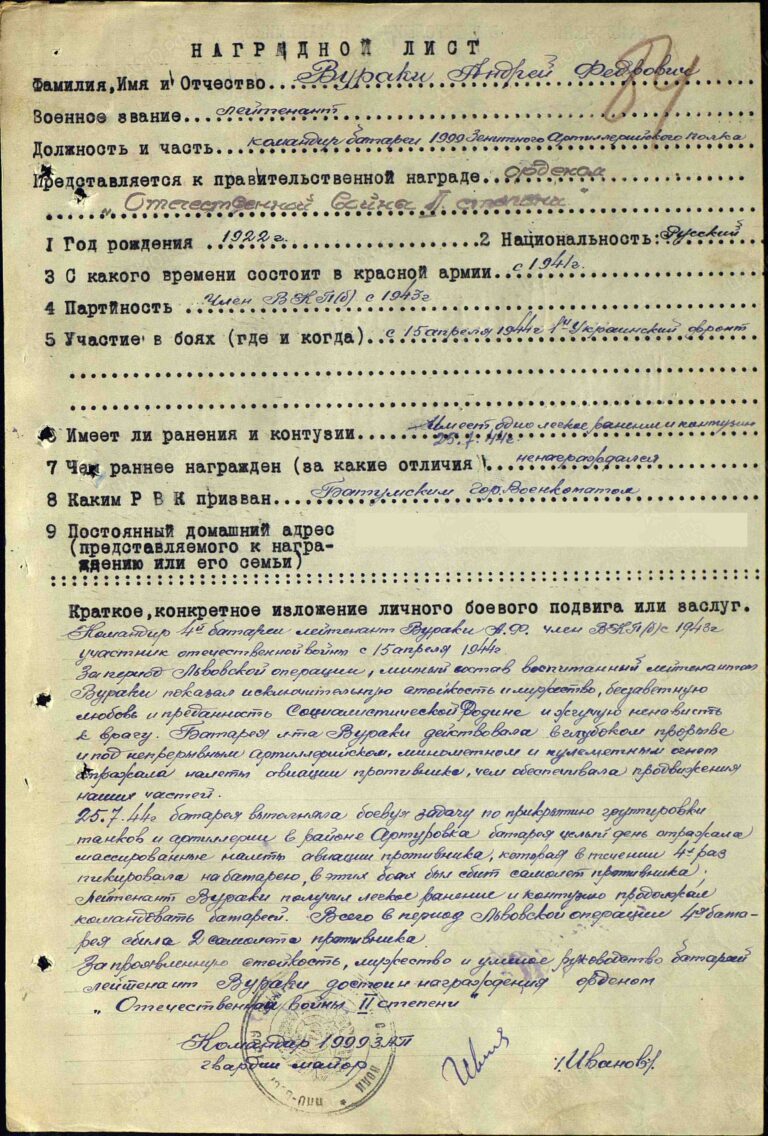 НАГРАДНОЙ ЛИСТ
84
Фамилия,Имя и Отчество...Вураки Андрей Федорович
Военное звание...лейтенант
Должность и часть...командир батареи 1999 Зенитного Артиллерийского полка
Представляется к правительственной награде...орденом
„Отечественной войны II степени"
1 Год рождения ..1922г. 2 Национальность: Русский
3 С какого времени состоит в красной армии..с 1941г.
4 Партйность ..Член ВКП(б) с 1943г
5 Участие в боях (где и когда)..с 15 апреля 1944г 1й Украинский фронт
6 Имеет ли ранения и контузии...Имеет одно легкое ранение и контузию
25.7.44г.
7 Чем раннее награжден (за какие отличия)..ненаграждался
8 Каким Р В К призван...Батумским гор.Военкоматом
9 Постоянный домашний адрес
(представляемого к награ-
ждению или его семьи)
Краткое,конкретное изложение личного боевого подвига или заслуг.
Командир 4й батареи лейтенант Вураки А.Ф. член ВКП(б) с 1943г
участник отечественной войны с 15 апреля 1944г.
За период Львовской операции, личный состав воспитанный лейтенантом
Вураки показал исключительную стойкость и мужество, беззаветную
любовь и преданность Социалистической Родине и жгучую ненависть
к врагу. Батарея л-та Вураки действовала в глубоком прорыве
и под непрерывным артиллерийском, минометном и пулеметным огнем
отражала налеты авиации противника, чем обеспечивала продвижения
наших частей.
25.7.44г батарея выполняла боевую задачу по прикрытию группировки
танков и артиллерии в районе Артуровка батарея целый день отражала
массированные налеты авиации противника, которая в течении 4х раз
пикировала на батарею, в этих боях был сбит самолет противника.
Лейтенант Вураки получил легкое ранение и контузию продолжал
командовать батареей. Всего в период Львовской операции 4я бата-
рея сбила 2 самолета противника
За проявленную стойкость, мужество и умелое руководство батареей
лейтенант Вураки достоин награждения орденом
„Отечественной войны II степени"
Командир 1999 ЗАП
гвардии майор /Иванов/.